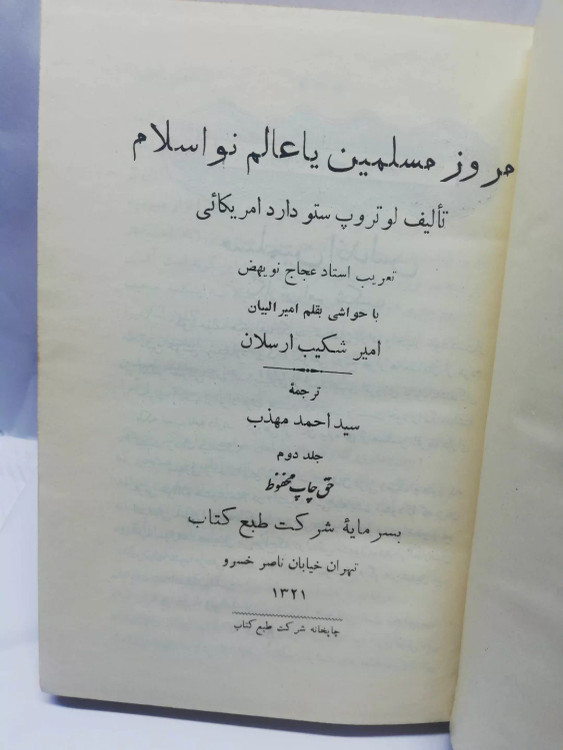 مروز مسلمین یا عالم نو اسلام
تألیف لوتروپ ستودارد امریکائی
تعریب استاد عجاج نویهض
با حواشی بقلم امیر البیان
امیر شکیب ارسلان
ترجمهٔ
سید احمد مهذب
جلد دوم
حق چاپ محفوظ
بسرمایهٔ شرکت طبع کتاب
تهران خیابان ناصر خسرو
۱۳۲۱
چاپخانه شرکت طبع کتاب